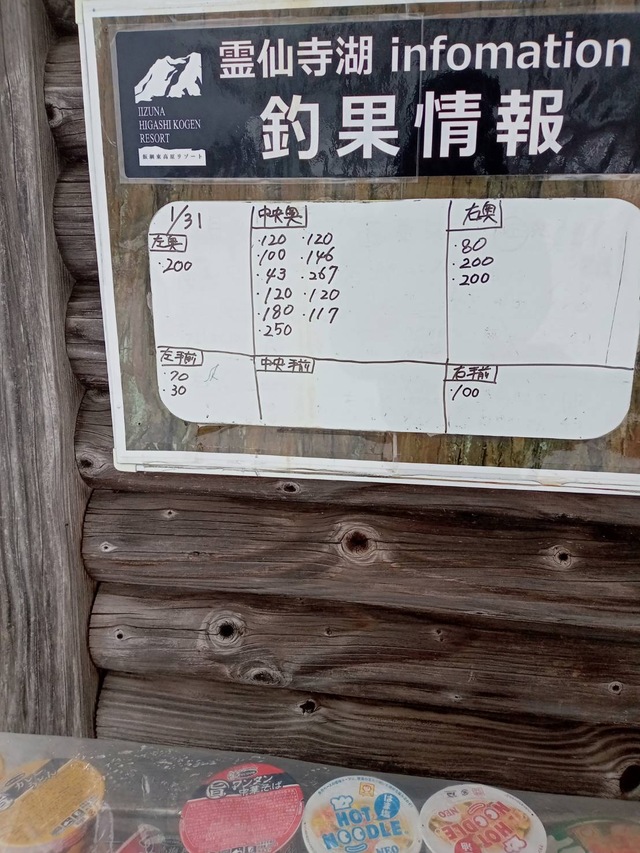 霊仙寺湖 infomation
釣果情報
IIZUNA
HIGASHI KOGEN
RESORT
飯綱東高原リゾート
1/31
左奥
・200
中央奥
・120 ・120
・100 ・146
・43 ・267
・120 ・120
・180 ・117
・250
右奥
・80
・200
・200
左手前
・70
・30
中央手前
右手前
・100
ワンタン
中華そば
HOT
NOODLE
NEO
NEO
HOT
NOODLE